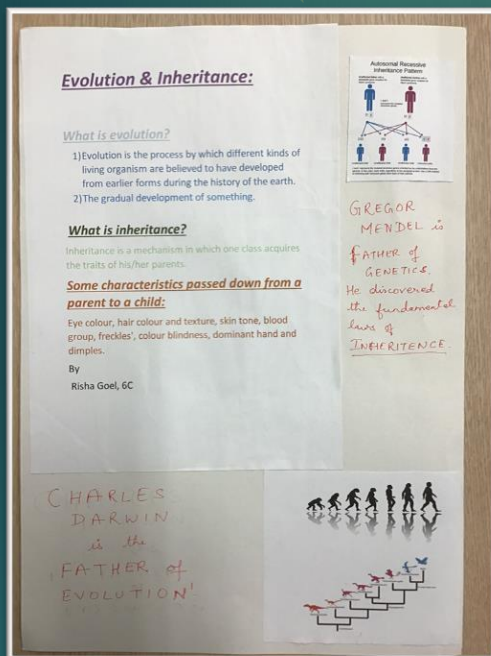 Evolution & Inheritance:
What is evolution?
1)Evolution is the process by which different kinds of
living organism are believed to have developed
from earlier forms during the history of the earth.
2)The gradual development of something.
What is inheritance?
Inheritance is a mechanism in which one class acquires
the traits of his/her parents.
Some characteristics passed down from a
parent to a child:
Eye colour, hair colour and texture, skin tone, blood
group, freckles', colour blindness, dominant hand and
dimples.
By
Risha Goel, 6C
Autosomal Recessive
Inheritance Pattern
GREGOR
MENDEL is
FATHER OF
GENETICS.
He discovered
the fundamental
laws of
INHERITENCE.
CHARLES
DARWIN
is the
FATHER of
EVOLUTION'